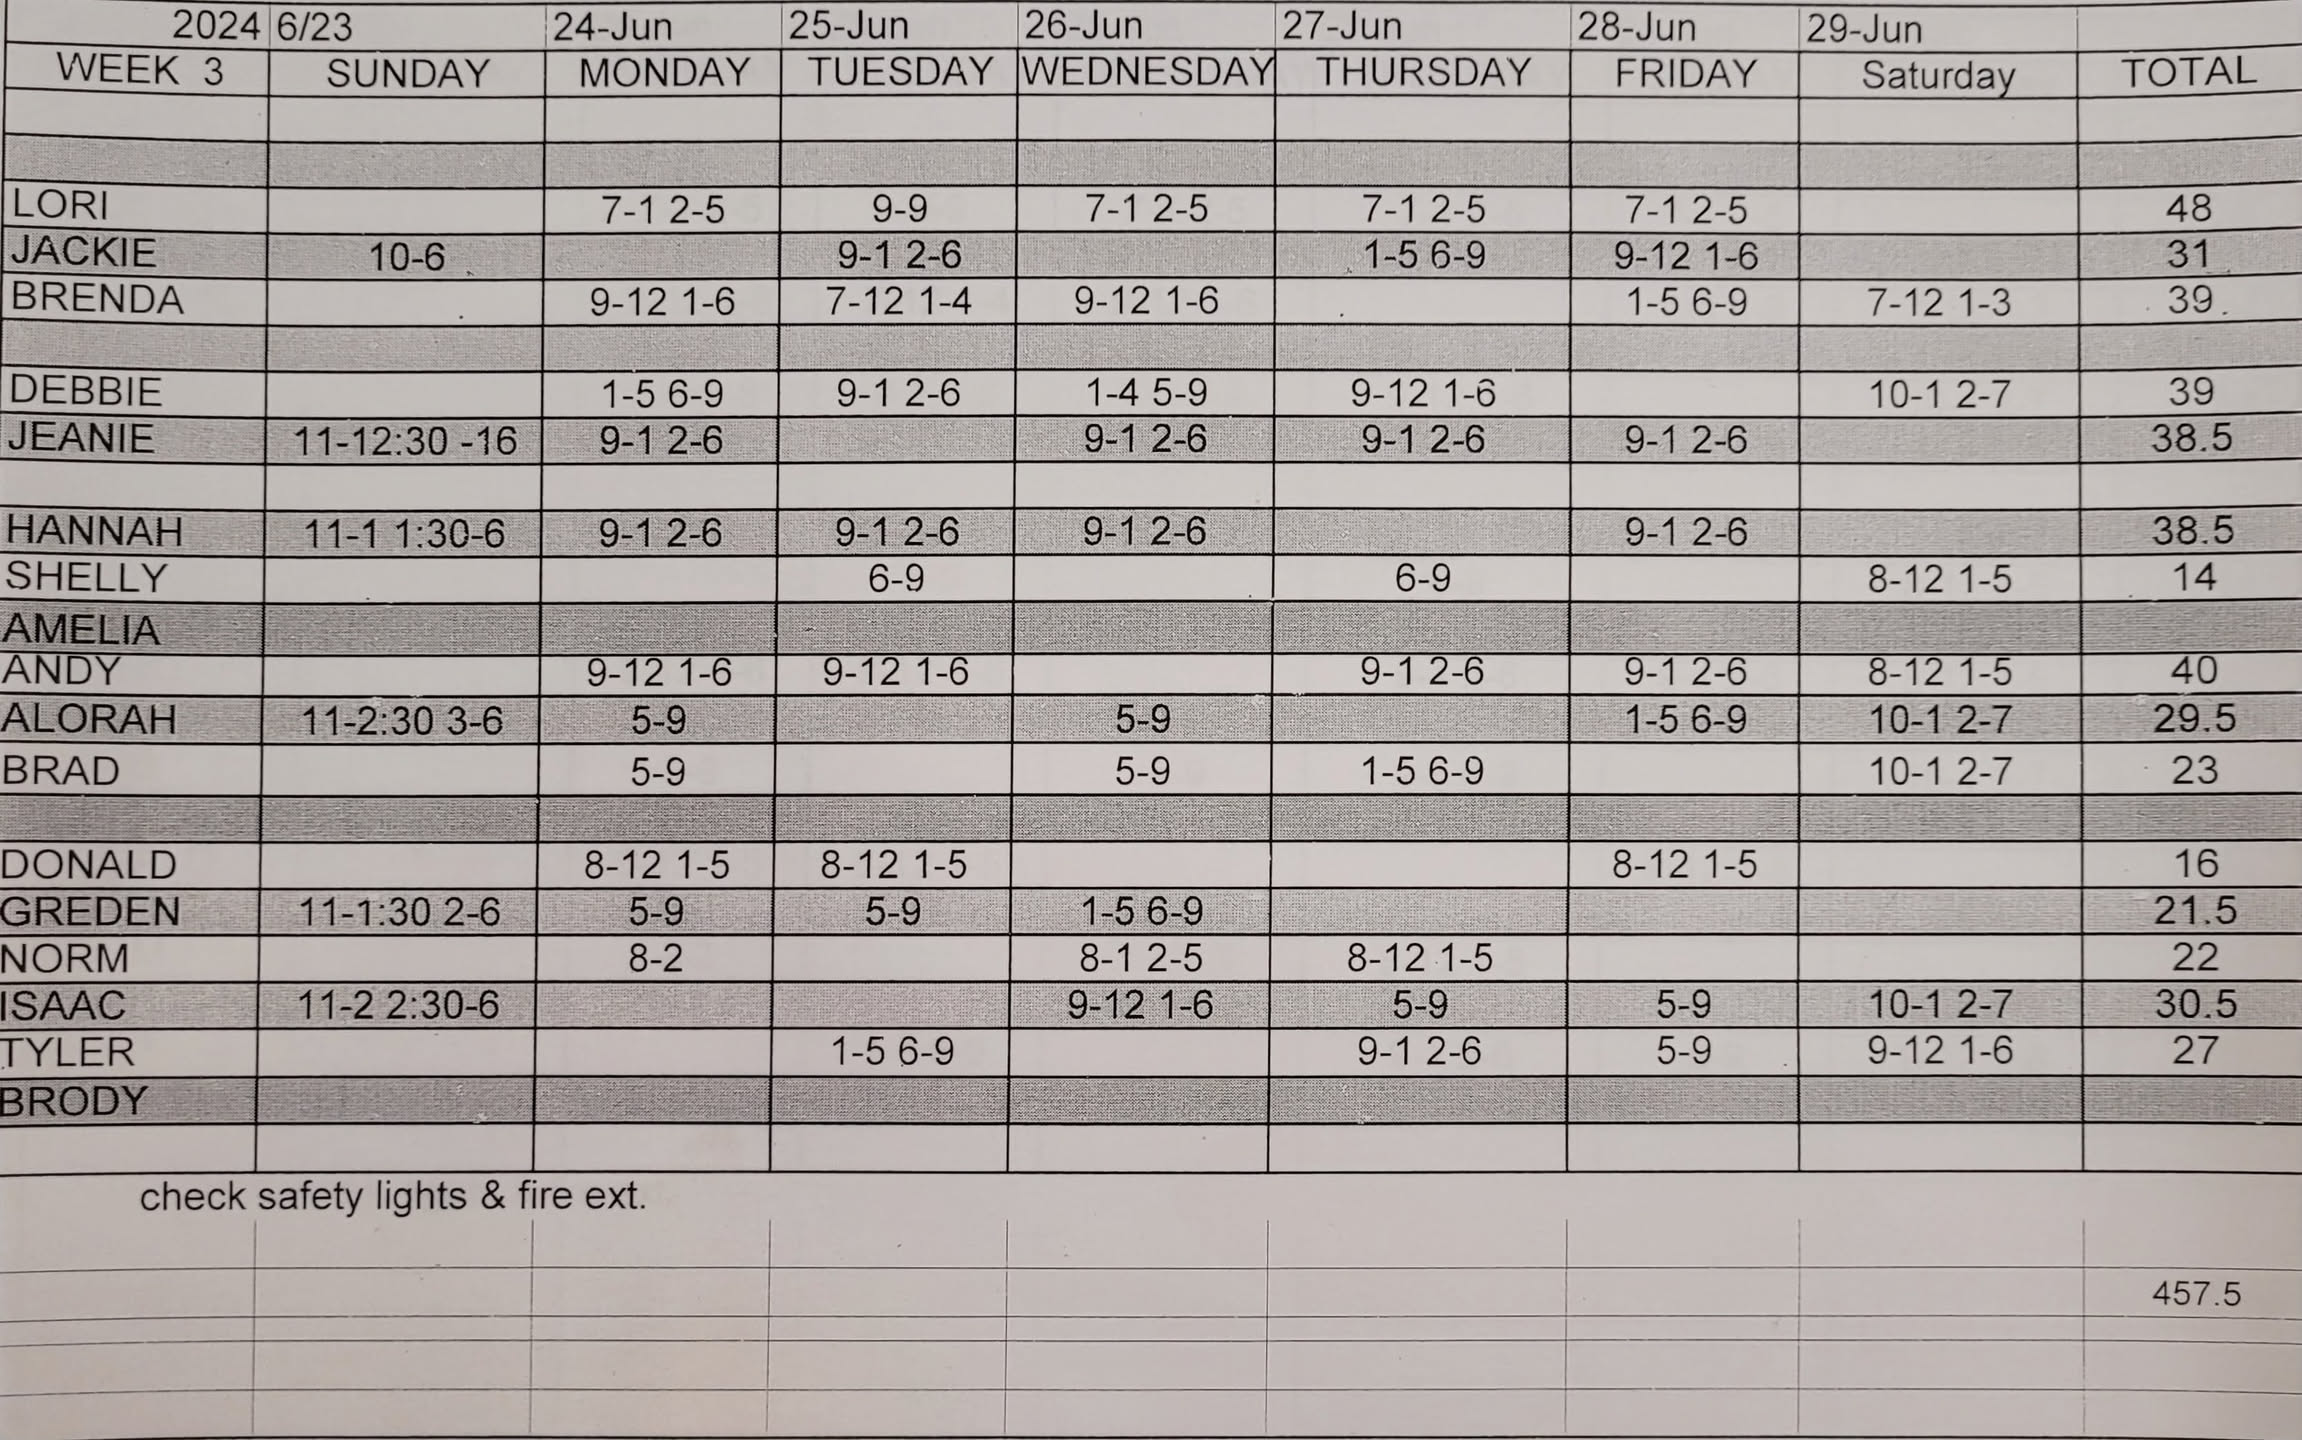 2024 6/23 24-Jun 25-Jun 26-Jun 27-Jun 28-Jun 29-Jun
WEEK 3 SUNDAY MONDAY TUESDAY WEDNESDAY THURSDAY FRIDAY Saturday TOTAL
LORI 7-1 2-5 9-9 7-1 2-5 7-1 2-5 7-1 2-5 48
JACKIE 10-6 9-1 2-6 1-5 6-9 9-12 1-6 31
BRENDA 9-12 1-6 7-12 1-4 9-12 1-6 1-5 6-9 7-12 1-3 39
DEBBIE 1-5 6-9 9-1 2-6 1-4 5-9 9-12 1-6 10-1 2-7 39
JEANIE 11-12:30 -16 9-1 2-6 9-1 2-6 9-1 2-6 9-1 2-6 38.5
HANNAH 11-1 1:30-6 9-1 2-6 9-1 2-6 9-1 2-6 9-1 2-6 38.5
SHELLY 6-9 6-9 8-12 1-5 14
AMELIA
ANDY 9-12 1-6 9-12 1-6 9-1 2-6 9-1 2-6 8-12 1-5 40
ALORAH 11-2:30 3-6 5-9 5-9 1-5 6-9 10-1 2-7 29.5
BRAD 5-9 5-9 1-5 6-9 10-1 2-7 23
DONALD 8-12 1-5 8-12 1-5 8-12 1-5 16
GREDEN 11-1:30 2-6 5-9 5-9 1-5 6-9 21.5
NORM 8-2 8-1 2-5 8-12 1-5 22
ISAAC 11-2 2:30-6 9-12 1-6 5-9 5-9 10-1 2-7 30.5
TYLER 1-5 6-9 9-1 2-6 5-9 9-12 1-6 27
BRODY
check safety lights & fire ext.
457.5